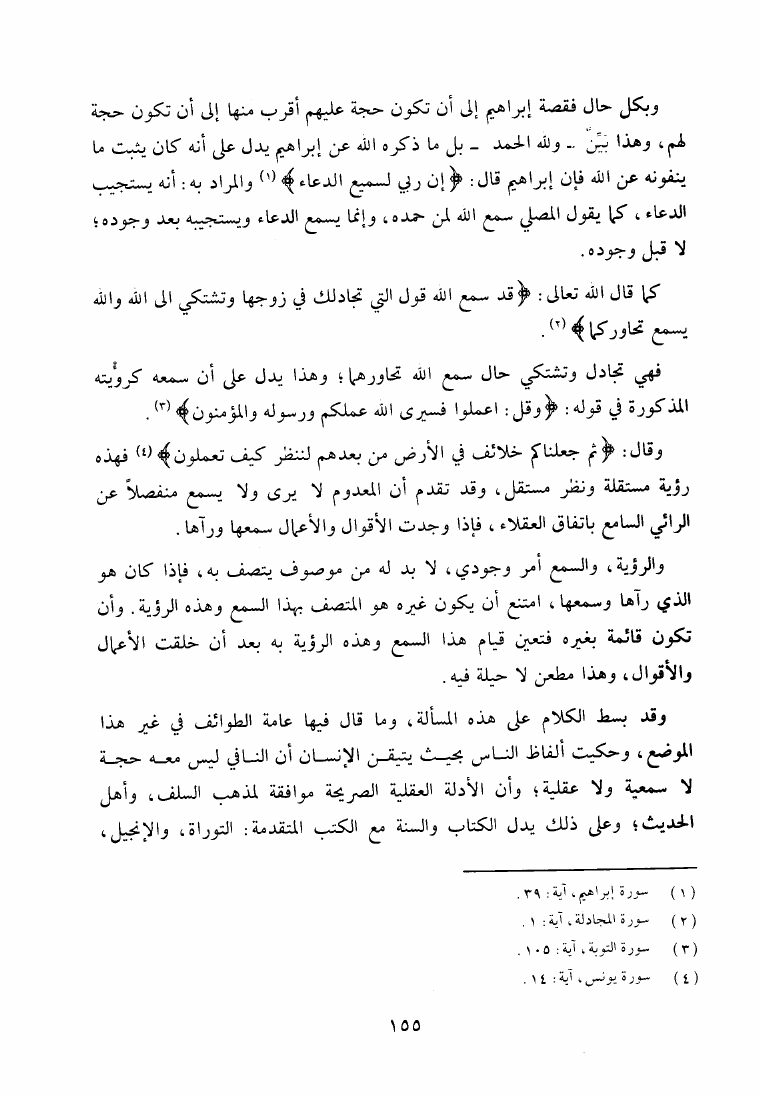 وبكل حال فقصة إبراهيم إلى أن تكون حجة عليهم أقرب منها إلى أن تكون حجة
لهم، وهذا بَيِّنٌ ـ ولله الحمد ـ بل ما ذكره الله عن إبراهيم يدل على أنه كان يثبت ما
ينفونه عن الله فإن إبراهيم قال: ﴿إن ربي لسميع الدعاء﴾ (١) والمراد به: أنه يستجيب
الدعاء، كما يقول المصلي سمع الله لمن حمده، وإنما يسمع الدعاء ويستجيبه بعد وجوده؛
لا قبل وجوده.
كما قال الله تعالى: ﴿قد سمع الله قول التي تجادلك في زوجها وتشتكي الى الله والله
يسمع تحاوركما﴾ (٢).
فهي تجادل وتشتكي حال سمع الله تحاورهما؛ وهذا يدل على أن سمعه كرؤيته
المذكورة في قوله: ﴿وقل: اعملوا فسيرى الله عملكم ورسوله والمؤمنون﴾ (٣).
وقال: ﴿ثم جعلناكم خلائف في الأرض من بعدهم لننظر كيف تعملون﴾ (٤) فهذه
رؤية مستقلة ونظر مستقل، وقد تقدم أن المعدوم لا يرى ولا يسمع منفصلاً عن
الرائي السامع باتفاق العقلاء، فإذا وجدت الأقوال والأعمال سمعها ورآها.
والرؤية، والسمع أمر وجودي، لا بد له من موصوف يتصف به، فإذا كان هو
الذي رآها وسمعها، امتنع أن يكون غيره هو المتصف بهذا السمع وهذه الرؤية. وأن
تكون قائمة بغيره فتعين قيام هذا السمع وهذه الرؤية به بعد أن خلقت الأعمال
والأقوال، وهذا مطعن لا حيلة فيه.
وقد بسط الكلام على هذه المسألة، وما قال فيها عامة الطوائف في غير هذا
الموضع، وحكيت ألفاظ الناس بحيث يتيقن الإنسان أن النافي ليس معه حجة
لا سمعية ولا عقلية؛ وأن الأدلة العقلية الصريحة موافقة لمذهب السلف، وأهل
الحديث؛ وعلى ذلك يدل الكتاب والسنة مع الكتب المتقدمة: التوراة، والإنجيل،
(١) سورة إبراهيم، آية: ٣٩.
(٢) سورة المجادلة، آية: ١.
(٣) سورة التوبة، آية: ١٠٥.
(٤) سورة يونس، آية: ١٤.
١٥٥